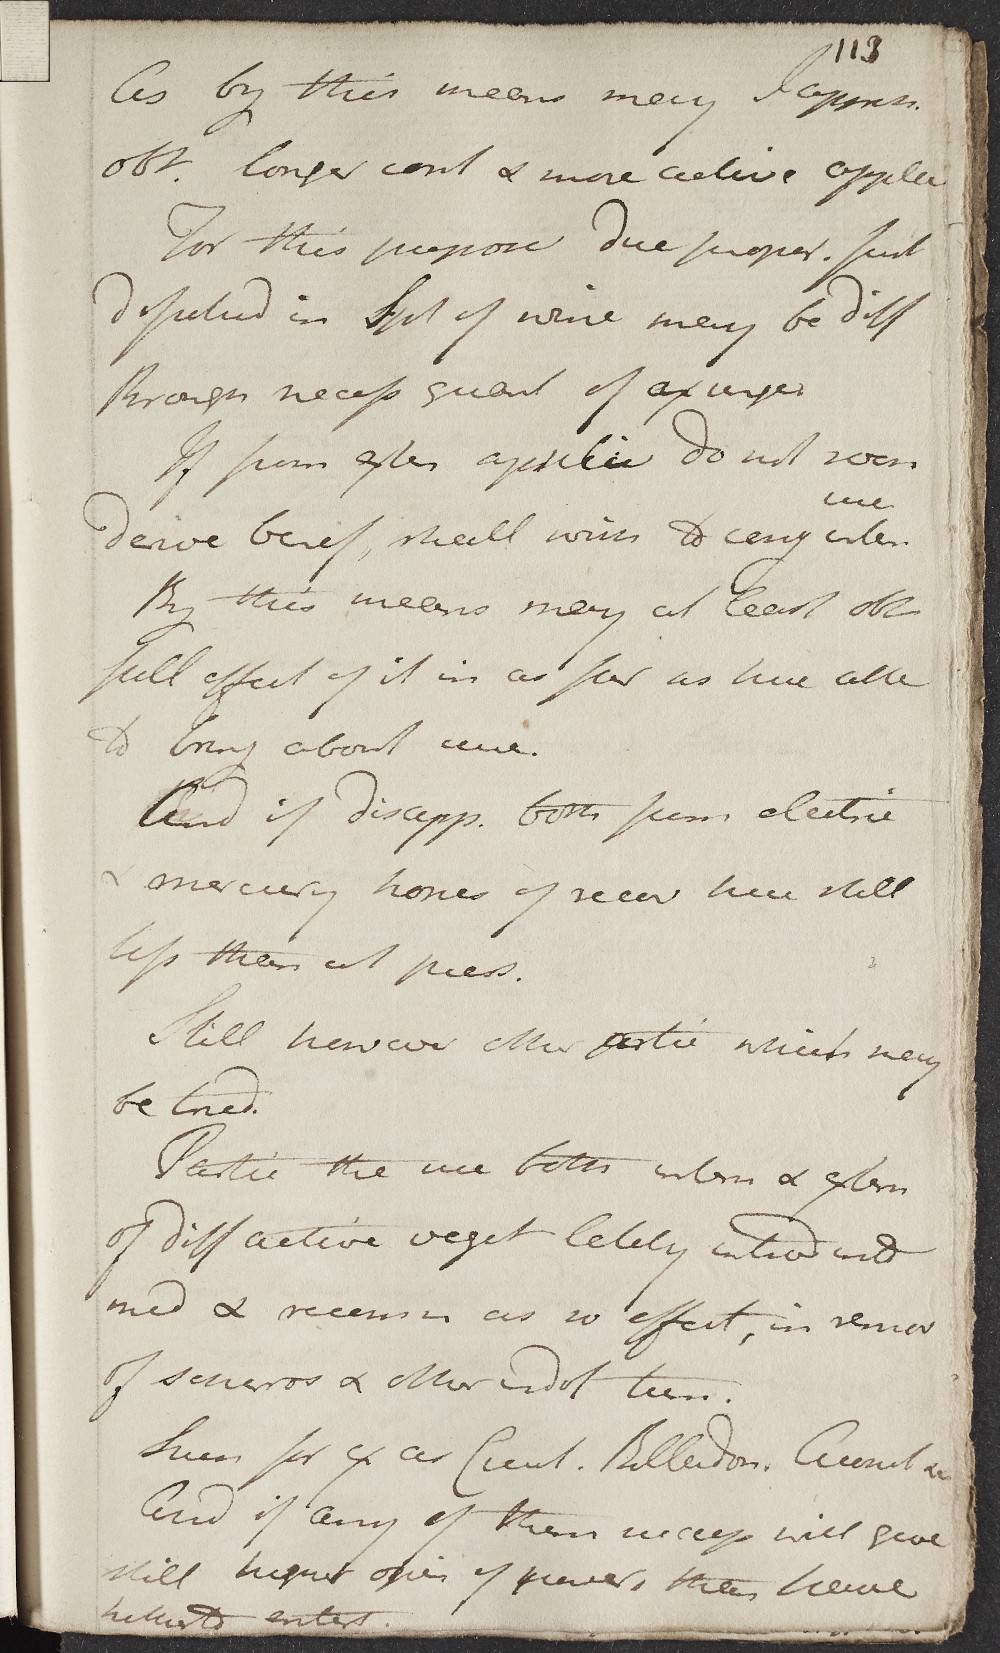 113
As by this means may I appreh.
obt. longer cont & more active applic
For this purpose Due proper. 
Dissolved in Spt of wine may be Diff
Through necess quant of axunge
If from exter applic Do not soon
use
Derive benef, shall wish to intern
By this means may at least obt
full effect of it in as far as here able
to bring about cure.
And if Disapp. both from electric
& mercury hopes of recov here still
less than at press.
Still however other partic which may
be tried.
Partic the use both intern & extern
of Diff active veget lately introd into
med & recomm as so effect, in remov
of scherros & other indol tum.
Such for ex as Cicut. Belladon. Aconit &c
And if any of them success will give
still higher opin of power, than have
hitherto entert.